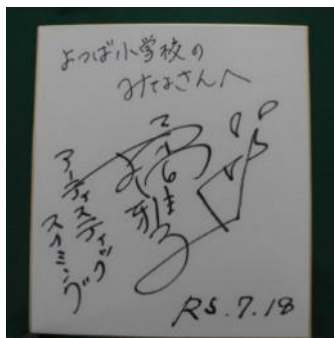 よつば小学校の
みなさんへ
アーティスティック
スイミング
R5.7.18